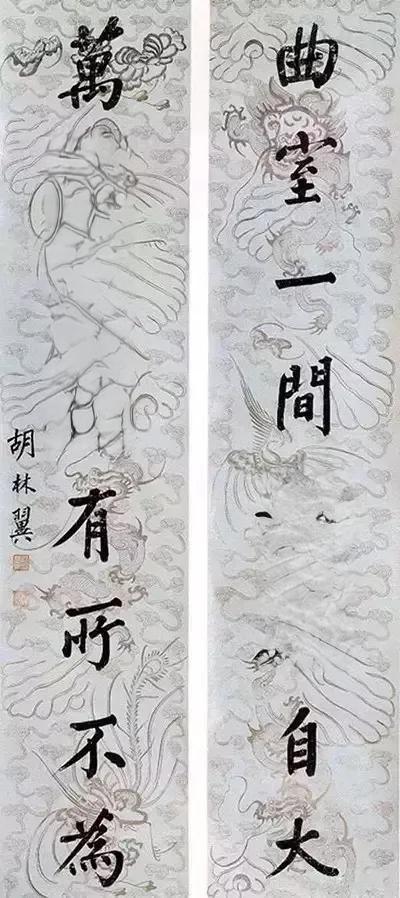 曲室一間自大
萬有所不為
胡林翼